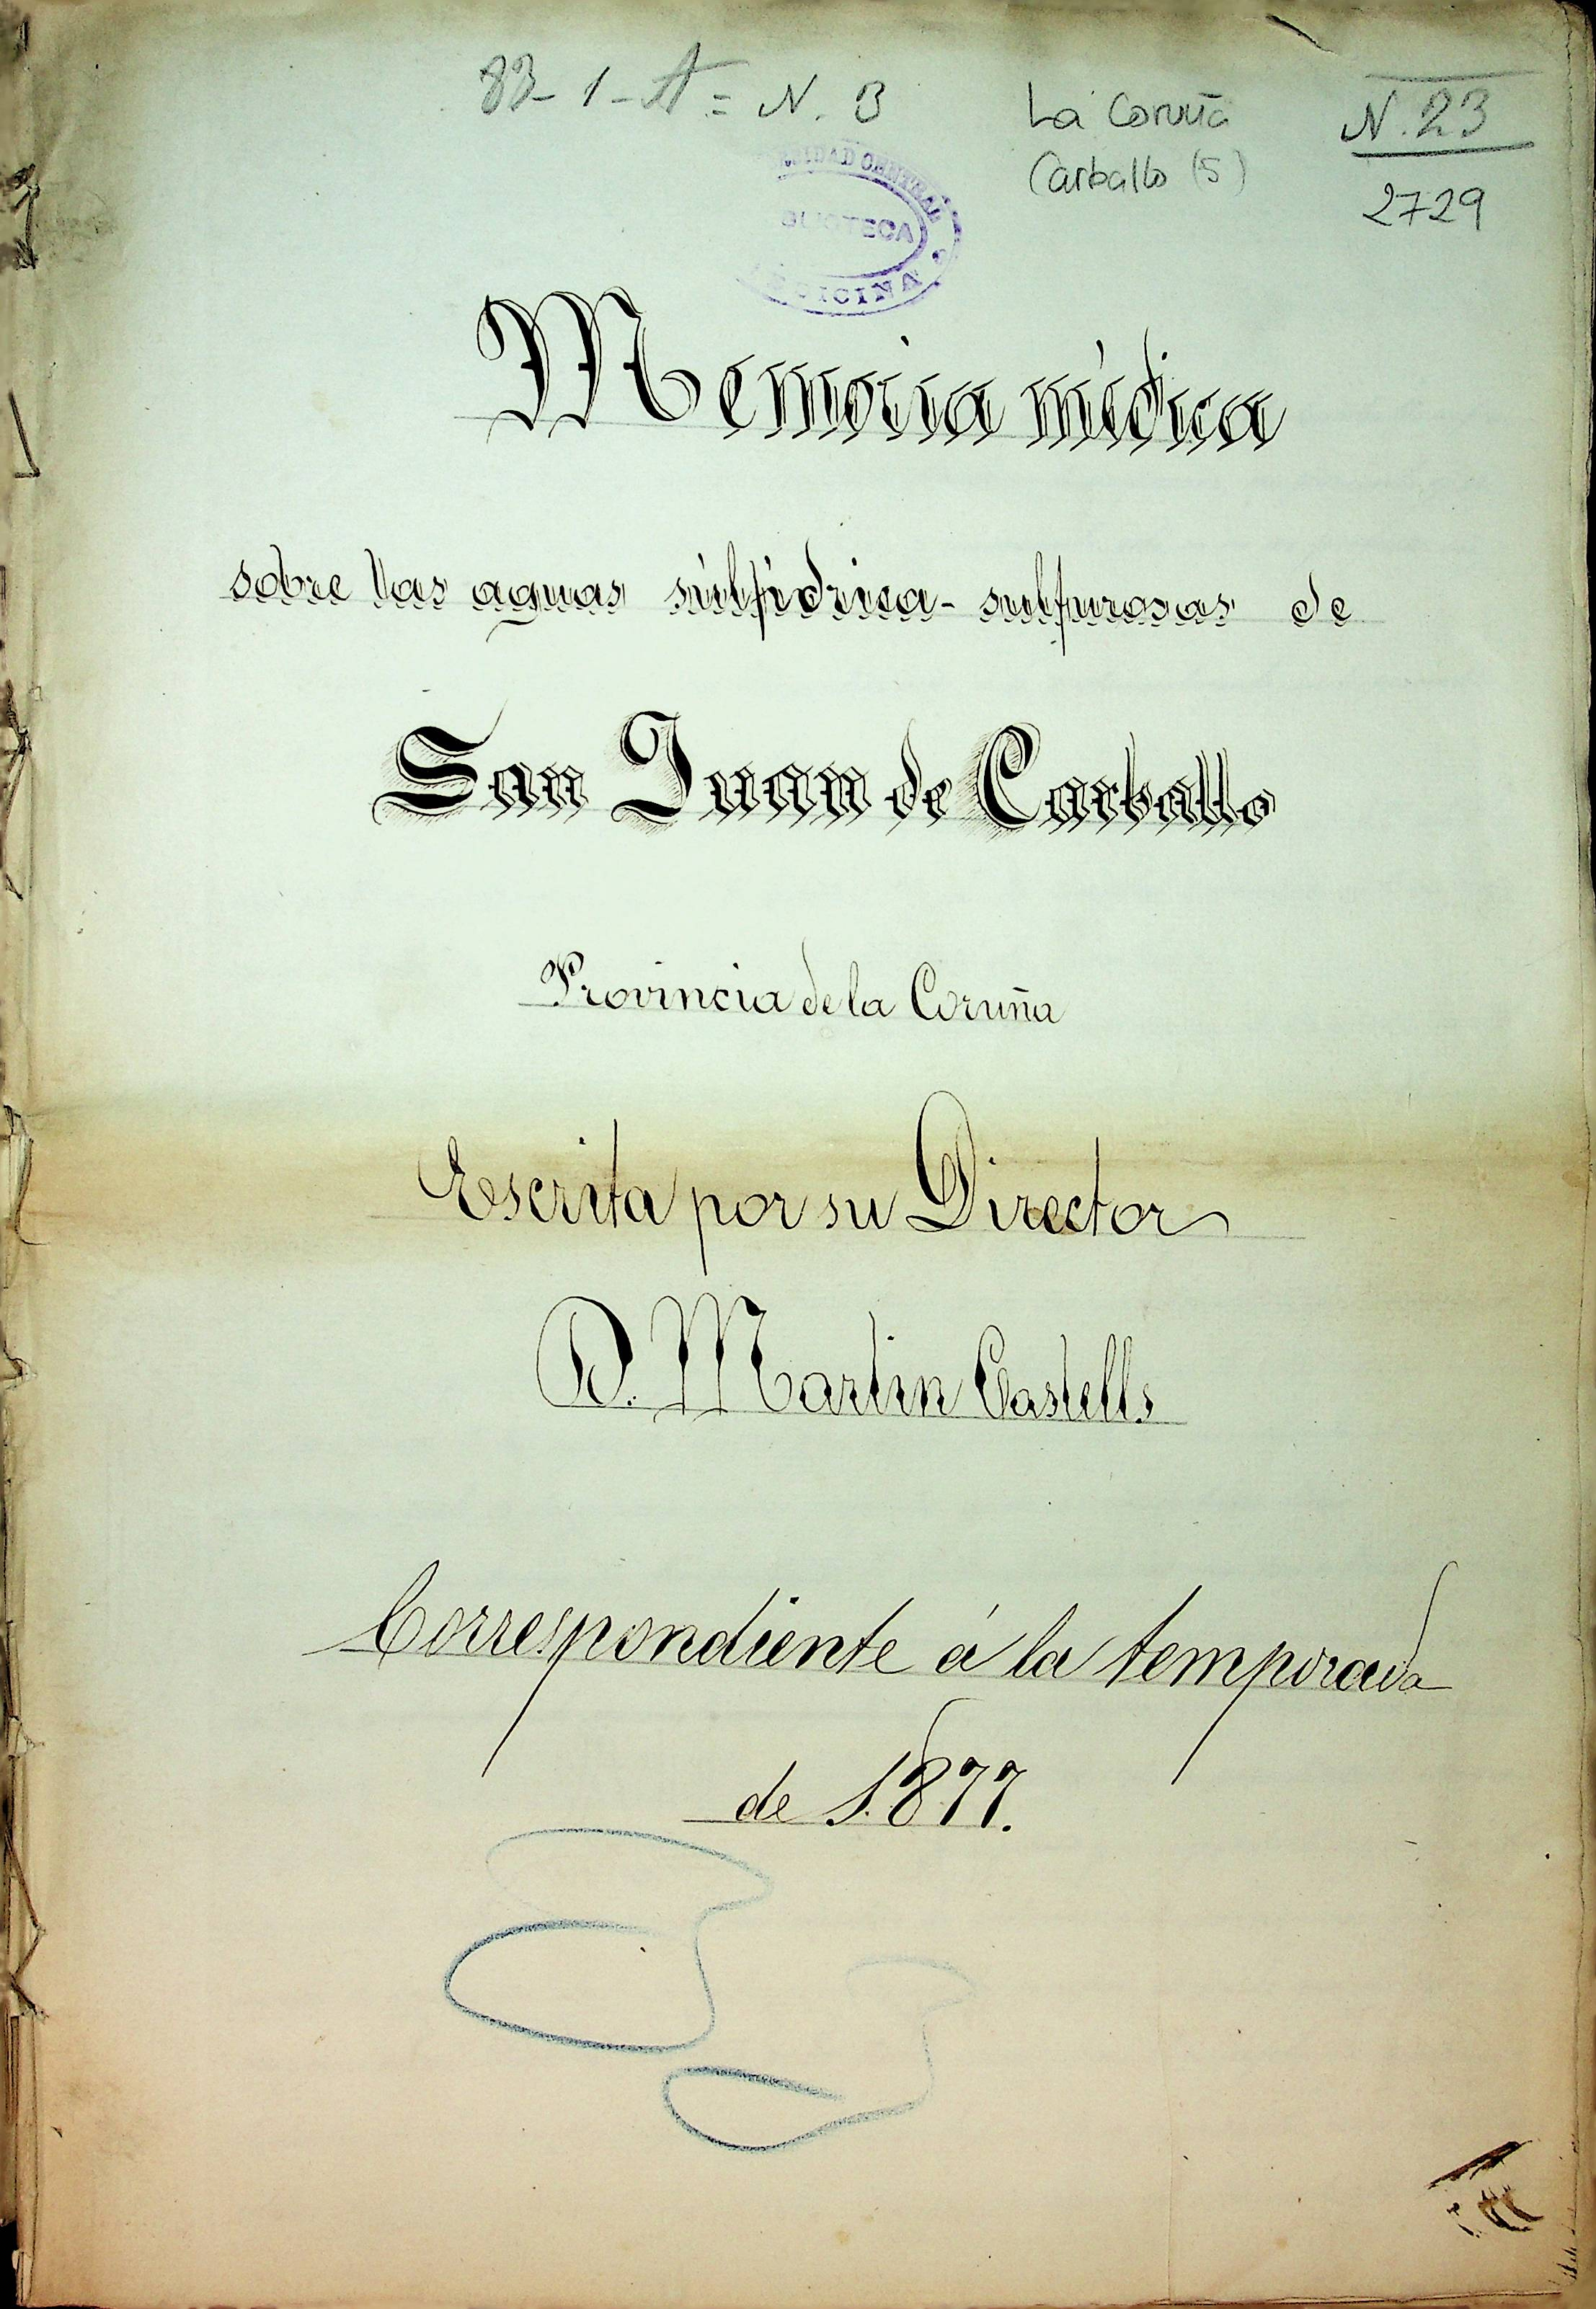 83-1-A = N. 3
La Coruña
Carballo (5)
N. 23
2729
BLIOTECA
Memoria médica
sobre las aguas sulfídrica-sulfurosas de
San Juan de Carballo
Provincia de la Coruña
Escrita por su Director
D. Martin Castells
Correspondiente á la temporada
de 1.877.